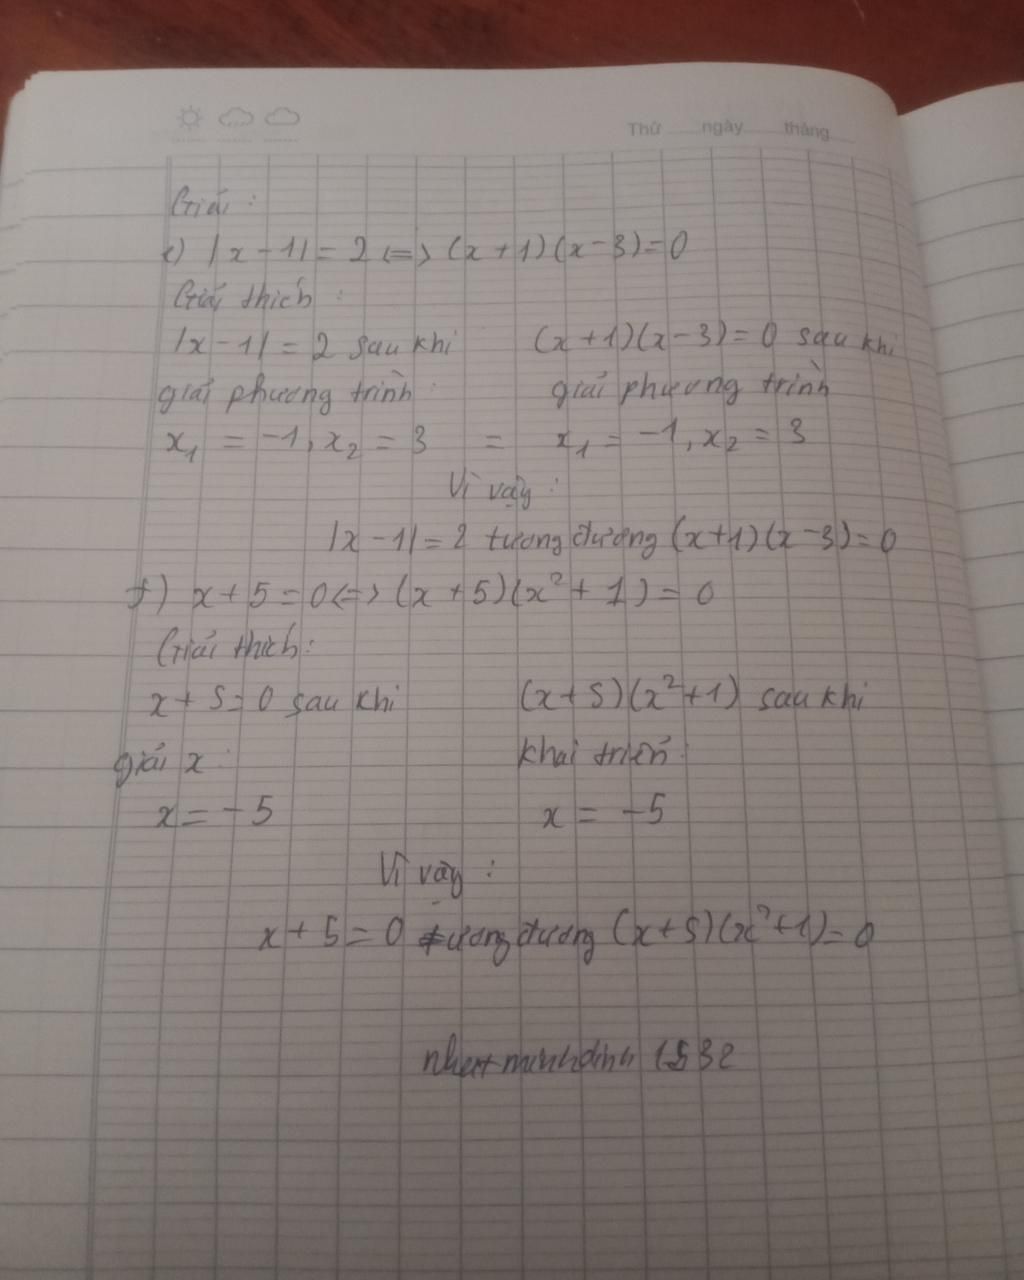 Thứ ngày tháng
Giải:
e) |x-1| = 2 <=> (x+1)(x-3)=0
Giải thích:
|x-1| = 2 sau khi (x+1)(x-3)=0 sau khi
giải phương trình: giải phương trình
x₁ = -1, x₂ = 3 = x₁ = -1, x₂ = 3
Vì vậy:
|x-1| = 2 tương đương (x+1)(x-3)=0
f) x+5=0 <=> (x+5)(x²+1)=0
Giải thích:
x+5=0 sau khi (x+5)(x²+1) sau khi
giải x: khai triển:
x = -5 x = -5
Vì vậy:
x+5=0 tương đương (x+5)(x²+1)=0